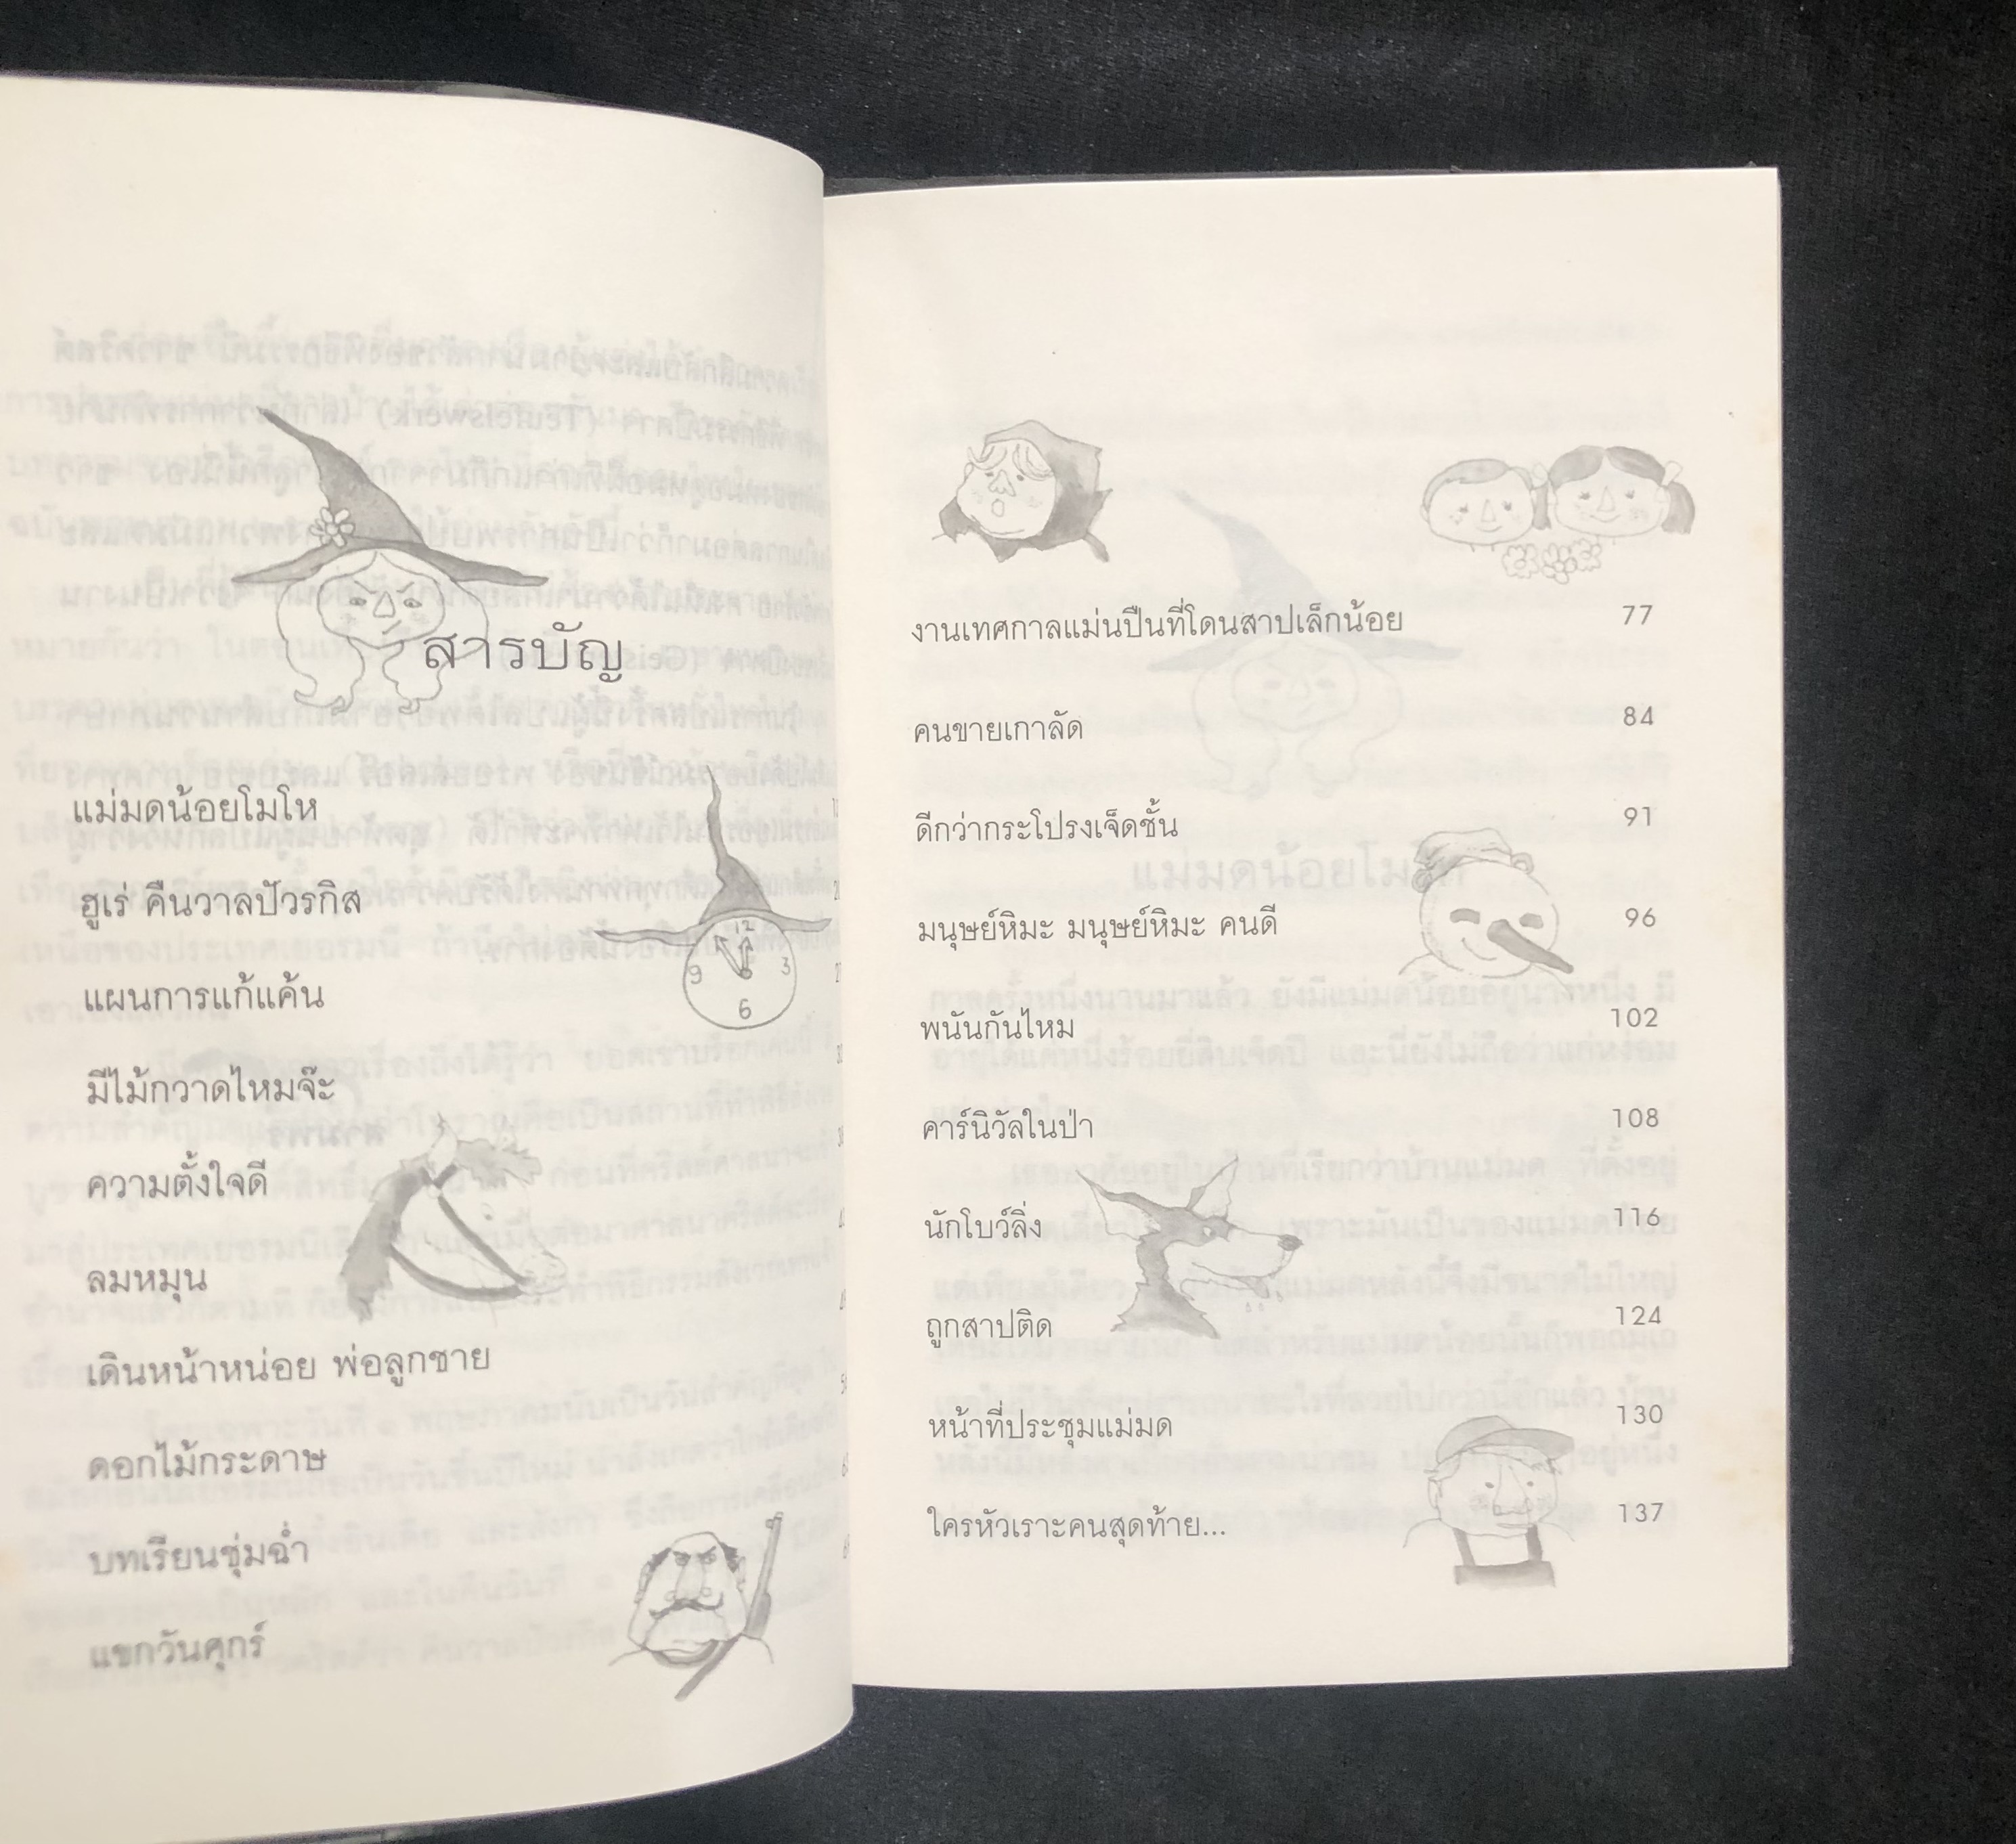 สารบัญ
แม่มดน้อยโมโห
ฮูเร่ คืนวาลปัวรกิส
แผนการแก้แค้น
มีไม้กวาดไหมจ๊ะ
ความตั้งใจดี
ลมหมุน
เดินหน้าหน่อย พ่อลูกชาย
ดอกไม้กระดาษ
บทเรียนชุ่มฉ่ำ
แขกวันศุกร์
12
9
3
6
งานเทศกาลแม่นปืนที่โดนสาปเล็กน้อย 77
คนขายเกาลัด 84
ดีกว่ากระโปรงเจ็ดชั้น 91
มนุษย์หิมะ มนุษย์หิมะ คนดี 96
พนันกันไหม 102
คาร์นิวัลในป่า 108
นักโบว์ลิ่ง 116
ถูกสาปติด 124
หน้าที่ประชุมแม่มด 130
ใครหัวเราะคนสุดท้าย... 137